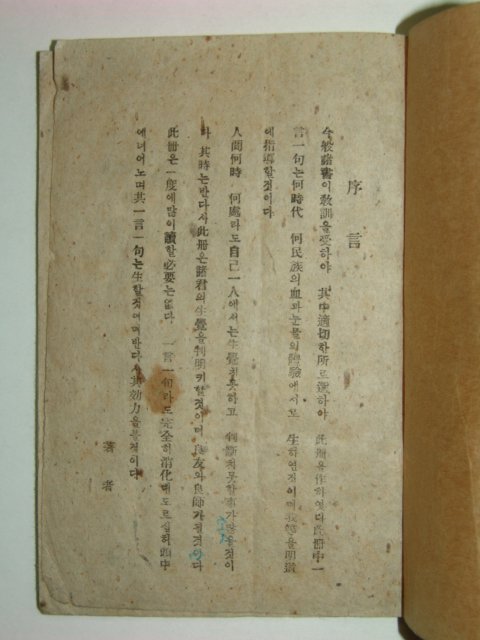 序言
今般諸書이敎訓을受하야 其中適切한所로選하야 此冊을作하엿다此冊中一
言一句는何時代 何民族의血과눈물의體驗에서로 生하엿집이며我等을明道
에指導할것이다
人間何時 何處라도自己一人에서는生覺치못하고 判斷치못할事가많을것이
라 其時는반다시此冊은諸君의生覺을判明키할것이며良友와良師가될것이다
此冊은一度에많이讀할必要는없다 一言一句라도完全히消化
에너어노며其一言一句는生할것이며반다시其効力을
著者